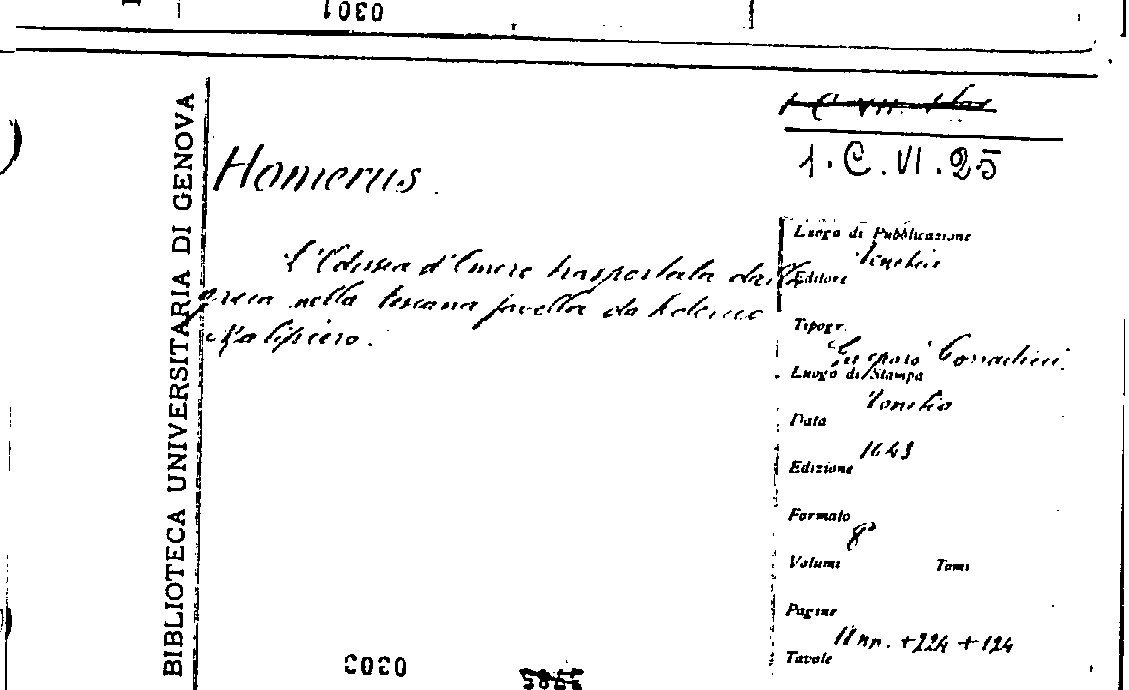 0301
BIBLIOTECA UNIVERSITARIA DI GENOVA
1. C. VI. 25
Homerus.
L'Odissea d'Omero trasportata dalla
greca nella toscana favella da Federico
Malipiero.
Luogo di Pubblicazione
Venezia
Editore
Tipogr.
Gasparo Corradici
Luogo di Stampa
Venezia
Data
1643
Edizione
Formato
8°
Volumi Tomi
Pagine
11 nn. + 224 + 124
Tavole
0303